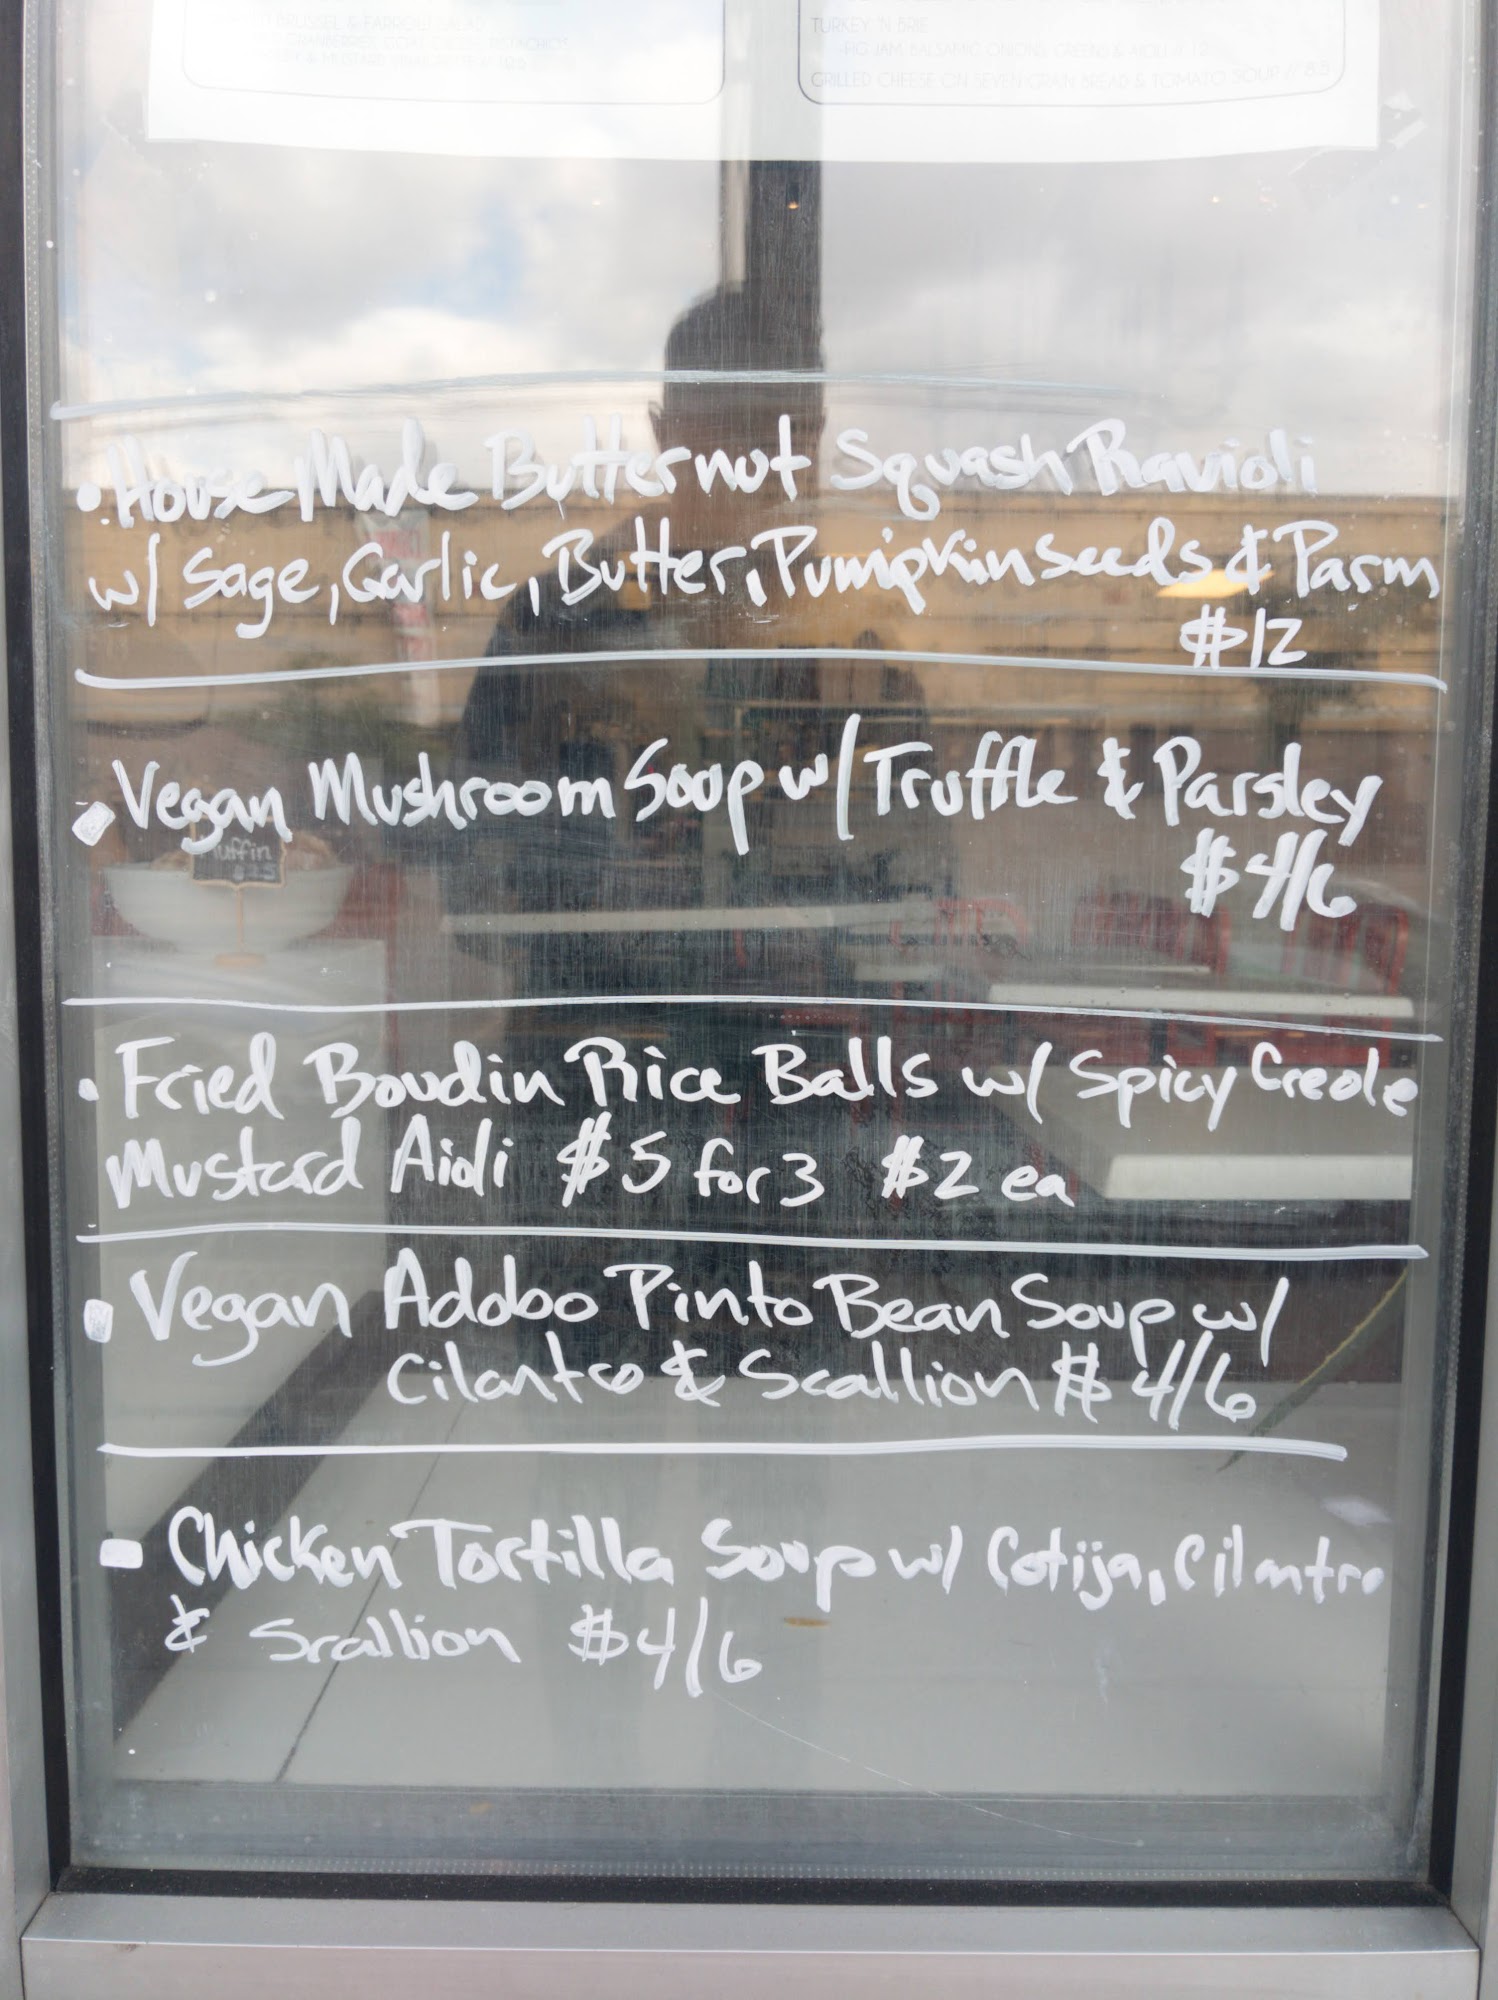 BRUSSEL & FARRO SALAD
TURKEY 'N BRIE
FIG JAM, BALSAMIC ONIONS, GREENS & AIOLI // 12
GRILLED CHEESE ON SEVEN GRAIN BREAD & TOMATO SOUP // 8.5
• House Made Butternut Squash Ravioli
w/ Sage, Garlic, Butter, Pumpkin seeds & Parm
$12
Vegan Mushroom Soup w/ Truffle & Parsley
$4/6
Muffin
• Fried Boudin Rice Balls w/ Spicy Creole
Mustard Aioli $5 for 3 $2 ea
Vegan Adobo Pinto Bean Soup w/
Cilantro & Scallion $4/6
Chicken Tortilla Soup w/ Cotija, Cilantro
& Scallion $4/6